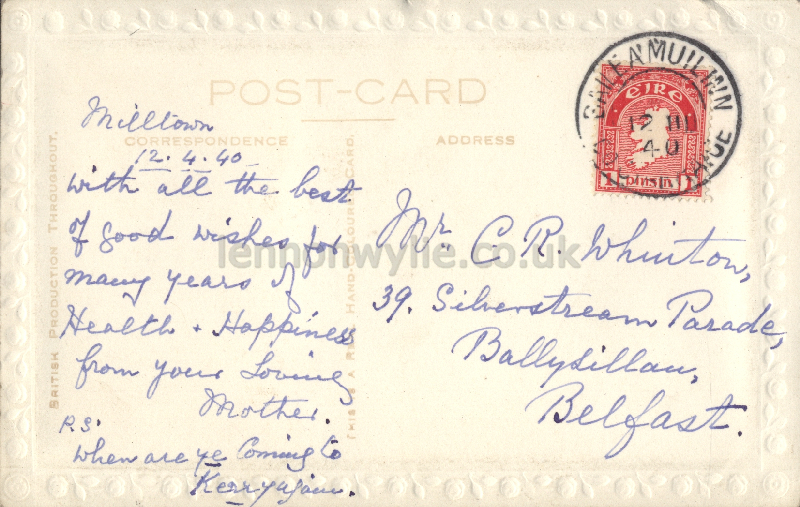 POST-CARD
CORRESPONDENCE
ADDRESS
Milltown
12.4.40
with all the best
of good wishes for
many years of
Health + Happiness
from your Loving
Mother.
P.S.
when are ye Coming to
Kerry again.
Mr. C R. Whinton,
39. Silverstream Parade,
Ballysillan,
Belfast.
BRITISH PRODUCTION THROUGHOUT.
THIS IS A REAL HAND-COLOURED CARD.
ÉIRE
1 PINGIN 1
12 III
40
lennonwylie.co.uk